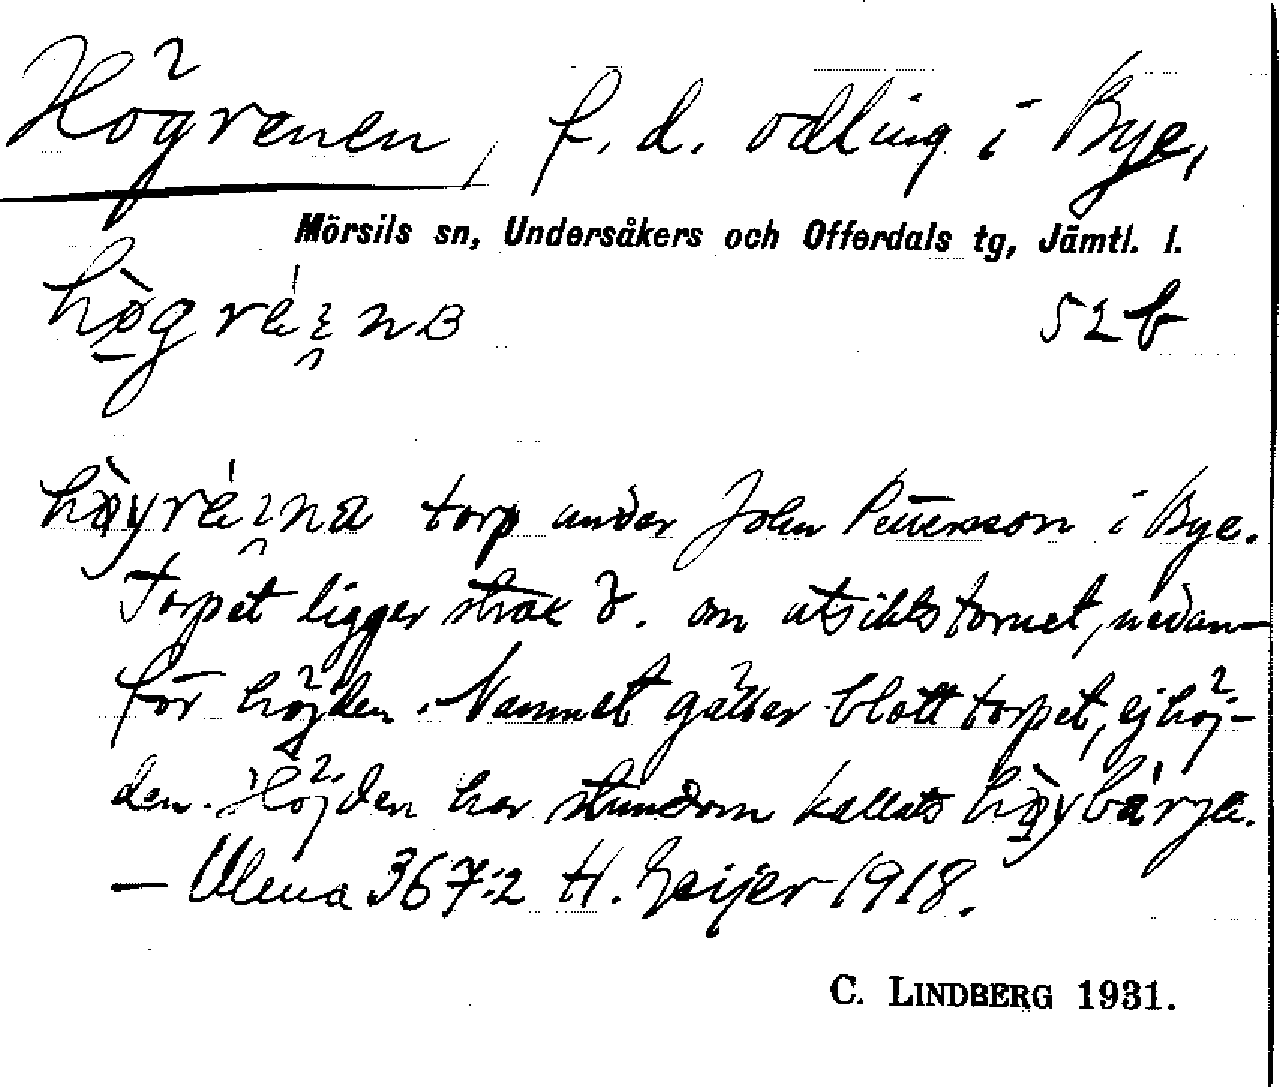 Högrenen, f. d. odling i Bye,
Mörsils sn, Undersåkers och Offerdals tg, Jämtl. l.
52 b
torp under John Pettersson i Bye.
Torpet ligger strax Ö. om utsiktstornet, nedan-
för höjden. Namnet gäller blott torpet, ej höj-
den. Höjden har stundom kallats
— Ulma 367:2 H. Geijer 1918.
C. LINDBERG 1931.